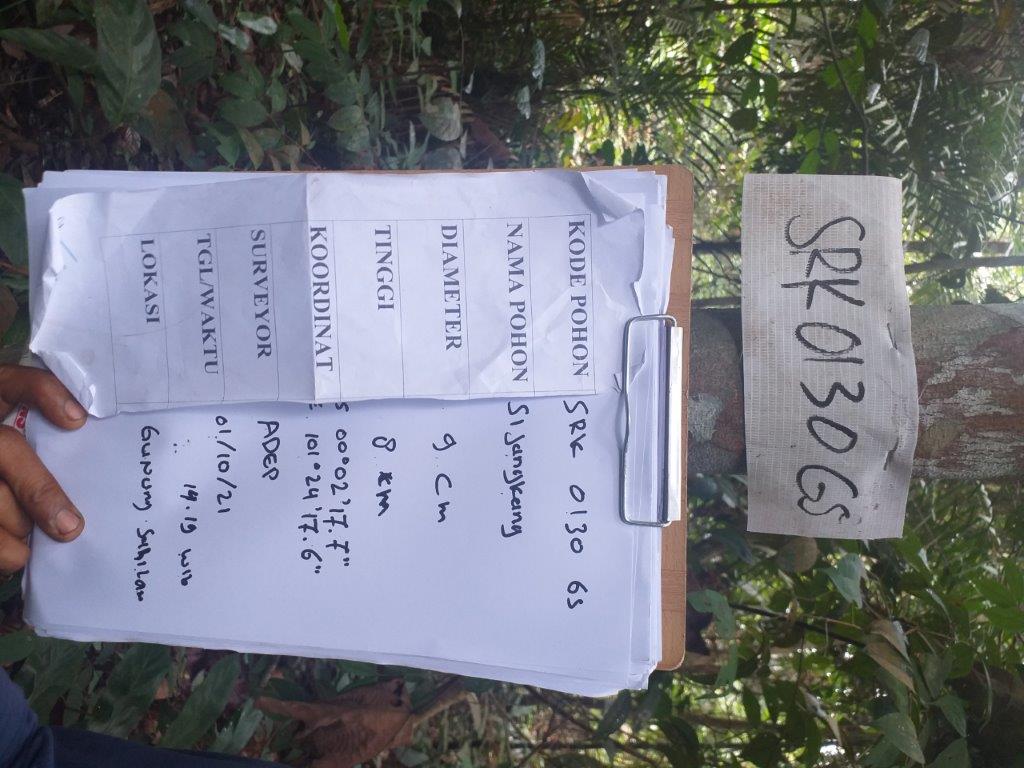 SRK 0130 GS
KODE POHON SRK 0130 GS
NAMA POHON Sijangkang
DIAMETER 9 cm
TINGGI 8 m
S 00°02'17.7"
KOORDINAT E 101°24'17.6"
SURVEYOR ADEP
TGL/WAKTU 01/10/21
14.19 WIB
LOKASI GUNUNG Sahilan